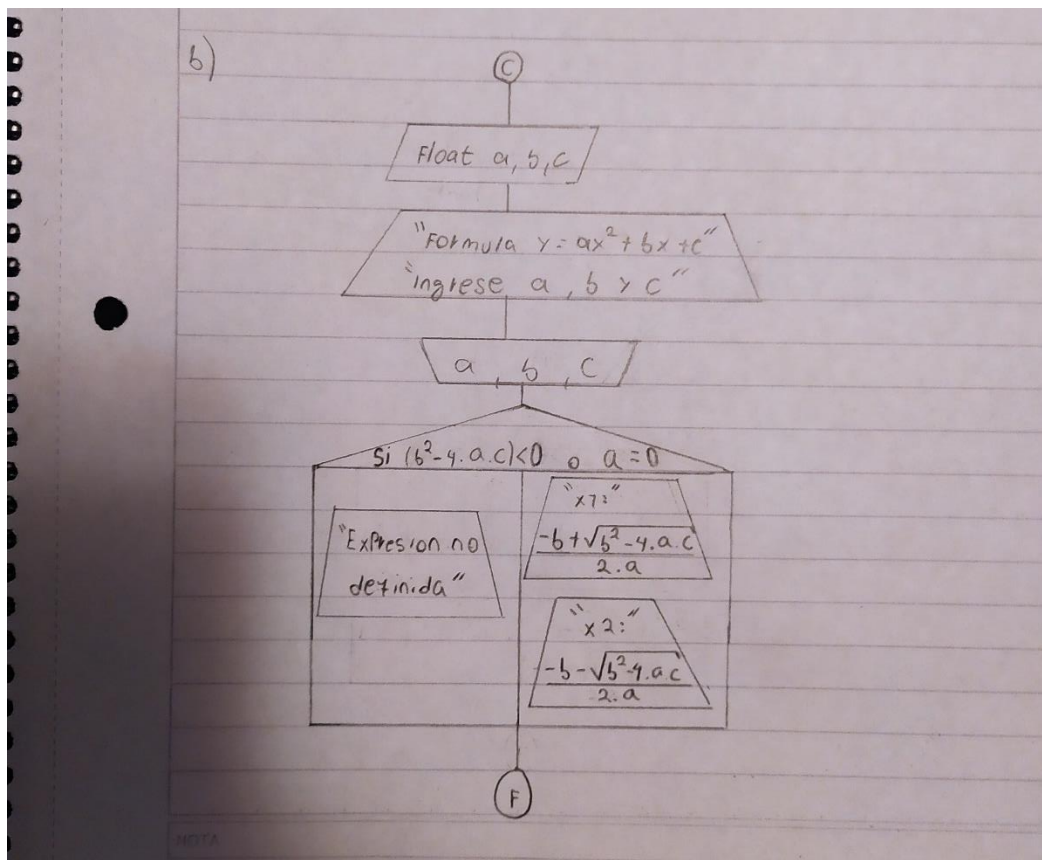 b)
C
Float a, b, c
"Formula y = ax² + bx + c"
"ingrese a, b y c"
a , b , c
Si (b²-4.a.c)<0 o a = 0
"Expresion no
definida"
"x1:"
-b+√b²-4.a.c
2.a
"x2:"
-b-√b²-4.a.c
2.a
F